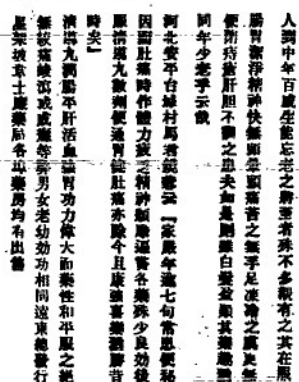 人到中年百感生能忘老之將至者殊不多覯有之其在服
腸胃潔淨精神快無頭暈頭痛苦之無手足凍冷之虞更無
便閉痔瘡肝胆不調之患夫如是則雖白髮盈顛其樂融融
同年少老季云哉
河北安平台城村馬君 云『家嚴年逾七旬常患便秘
因而肚痛時作體力疲乏精神頹唐遍嘗各藥殊少良效後
服清導丸數劑便通胃健肚痛亦除今且康強喜樂勝昔
時矣』
清導丸潤腸平肝活血强胃功力偉大而藥性和平服之絕
無絞痛峻瀉或成癮等弊男女老幼効功相同遠東總發行
星架坡韋士廉藥局各埠藥房均有出售